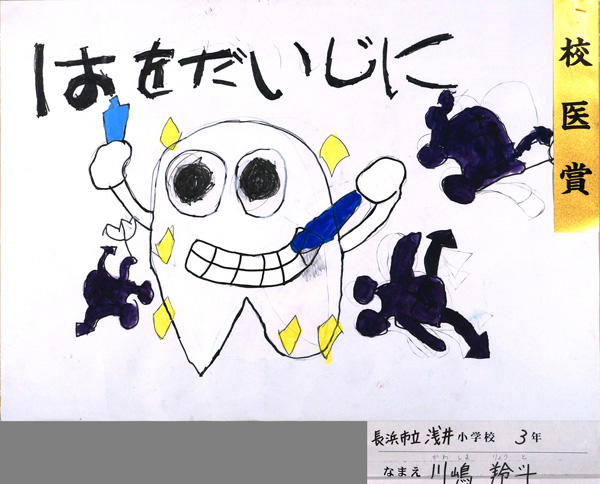 はをだいじに
校医賞
長浜市立浅井小学校 3年
かわ しま りょう と
なまえ 川嶋 羚斗